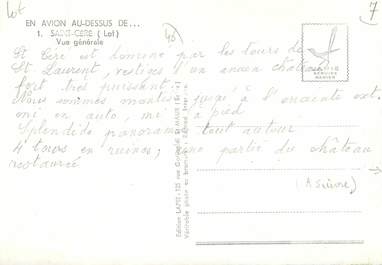 Lot
7
EN AVION AU-DESSUS DE...
1. SAINT-CERE (Lot)
Vue générale
St Céré est dominé par les tours de
St Laurent, vestiges d'un ancien château
fort très puissant.
Nous sommes montés jusqu'à l'enceinte ext
en auto, à pied
Splendide panorama tout autour
4 tours en ruines, une partie du château
restaurée
(A suivre)
Edition LAPIE : 125 rue ST MAUR
Véritable photo au bromure